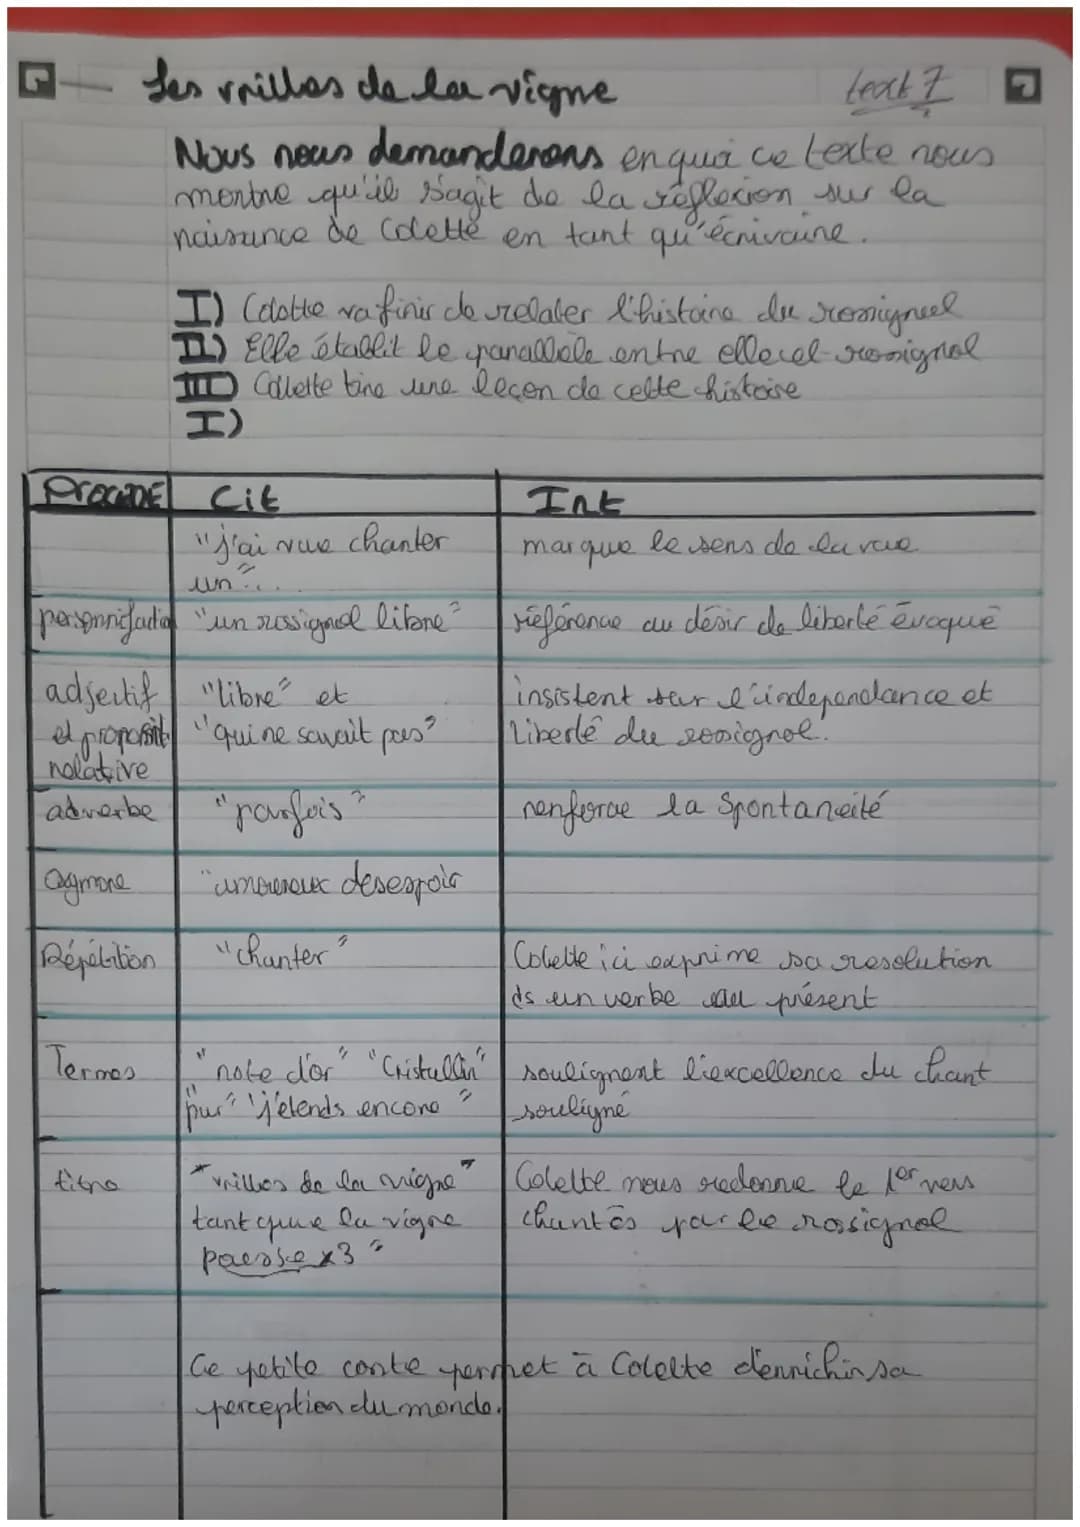 Les vrilles de la vigne
text 7
Nous nous demanderons en quoi ce texte nous
montre qu'il s'agit de la réflexion sur la
naissance de Colette en tant qu'écrivaine.
I) Colette va finir de relater l'histoire du rossignol
II) Elle établit le parallèle entre elle et rossignol
III) Collette tire une leçon de cette histoire
I)
PROCEDE Cit Int
"j'ai vue chanter marque le sens de la vue
un"...
personnification "un rossignol libre" référence au désir de liberté évoqué
adjectif "libre" et insistent sur l'independance et
et proposit "qui ne savait pas" liberté du rossignol.
relative
adverbe "parfois" renforce la spontaneité
"amoureux desespoir
Répétition "chanter" Colette ici exprime sa resolution
ds un verbe au présent
Termes "note d'or" "Cristallin" soulignent l'excellence du chant
pur" "j'etends encore" souligné
titre "vrilles de la vigne" Colette nous redonne le 1er vers
tant que la vigne chantés par le rossignol
pousse x3"
Ce petite conte permet à Colette d'enrichir sa
perception du monde.